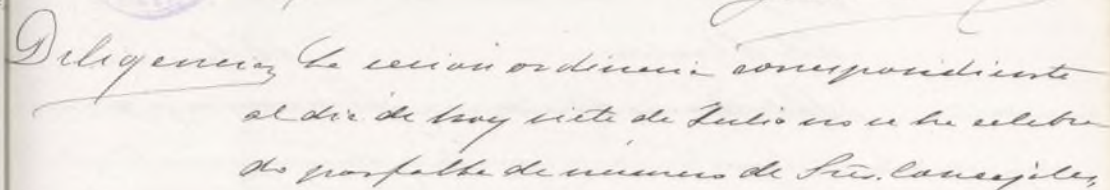 Diligencia, La sesion ordinaria correspondiente
al dia de hoy siete de Julio no se ha celebra
do por falta de numero de Sres. Concejales,